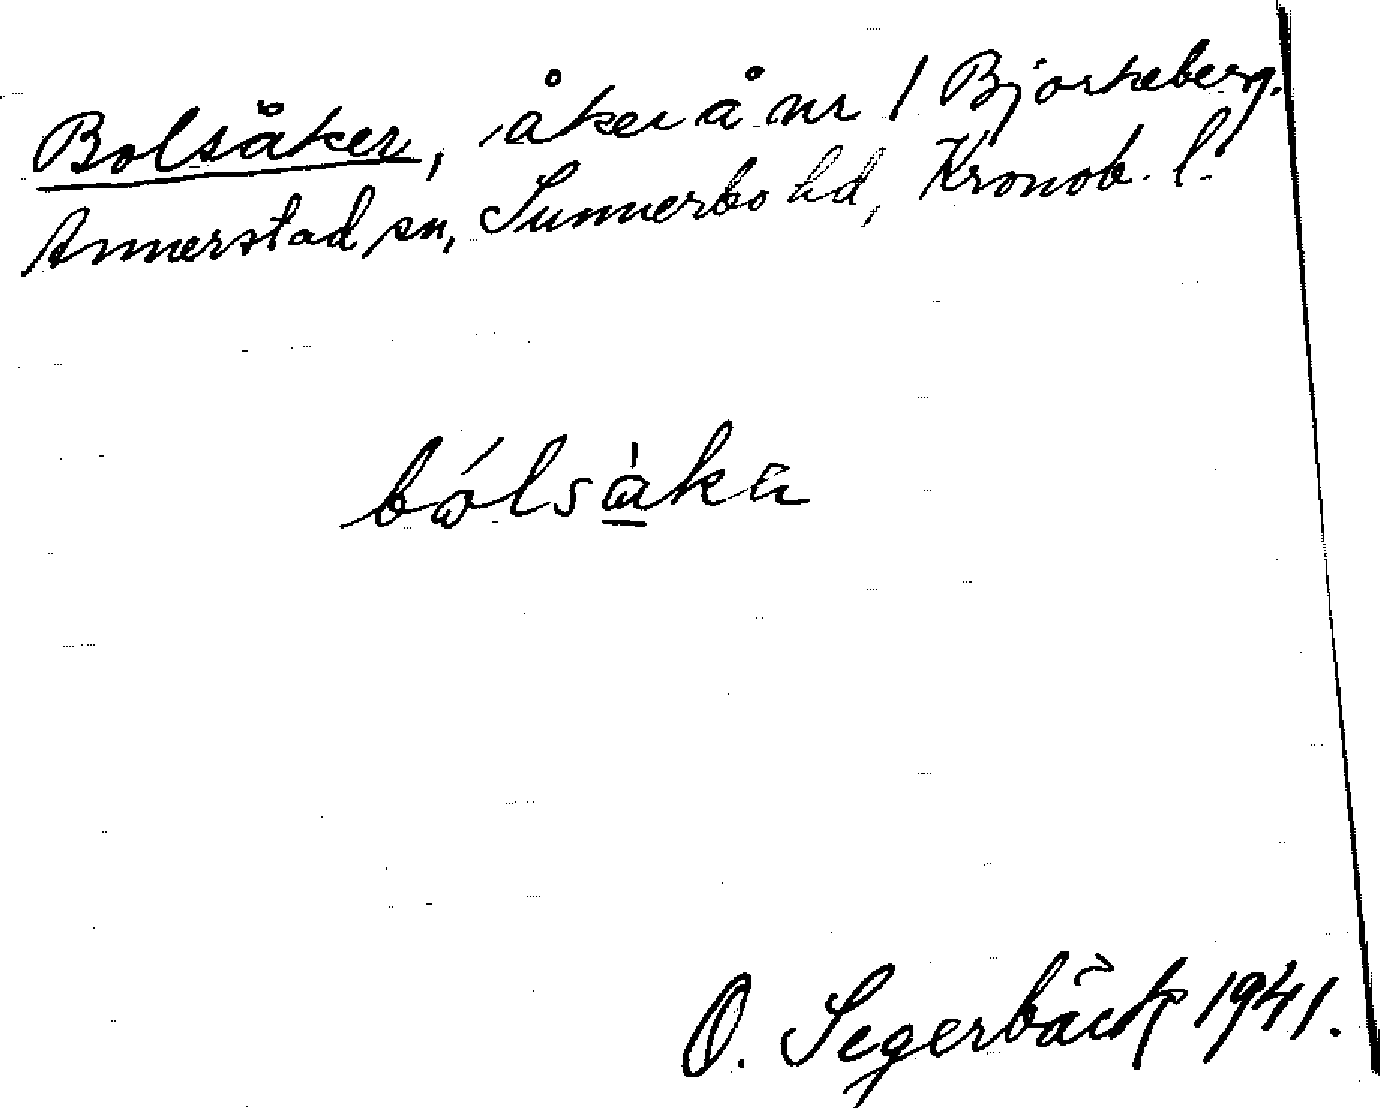 Bolsåker, åker å nr 1 Bjorkeberg.
Annerstad sn, Sunnerbo hd, Kronob. l.
O. Segerbäck 1941.